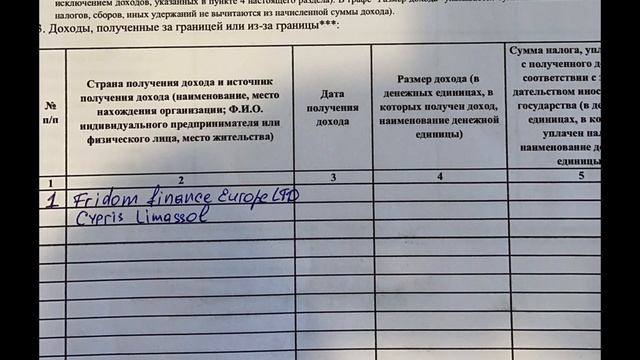 исключением доходов, указанных в пункте 4 настоящего раздела). В графе
налогов, сборов, иных удержаний не вычитаются из начисленной суммы дохода).
Доходы, полученные за границей или из-за границы***:
№
п/п
Страна получения дохода и источник
получения дохода (наименование, место
нахождения организации; Ф.И.О.
индивидуального предпринимателя или
физического лица, место жительства)
Дата
получения
дохода
Размер дохода (в
денежных единицах, в
которых получен доход,
наименование денежной
единицы)
Сумма налога, упл
с полученного д
соответствии с з
дательством инос
государства (в де
единицах, в ко
уплачен нал
наименование де
единицы
1 2 3 4 5
1 Fridom finance Europe LTD
Cypris Limassol